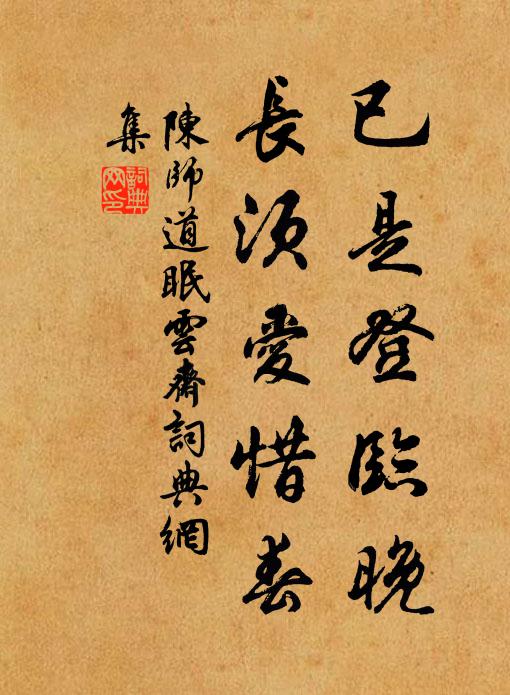 已是登臨晚
長須愛惜春
陳師道眠雲齋詞典網
集
詞典網印